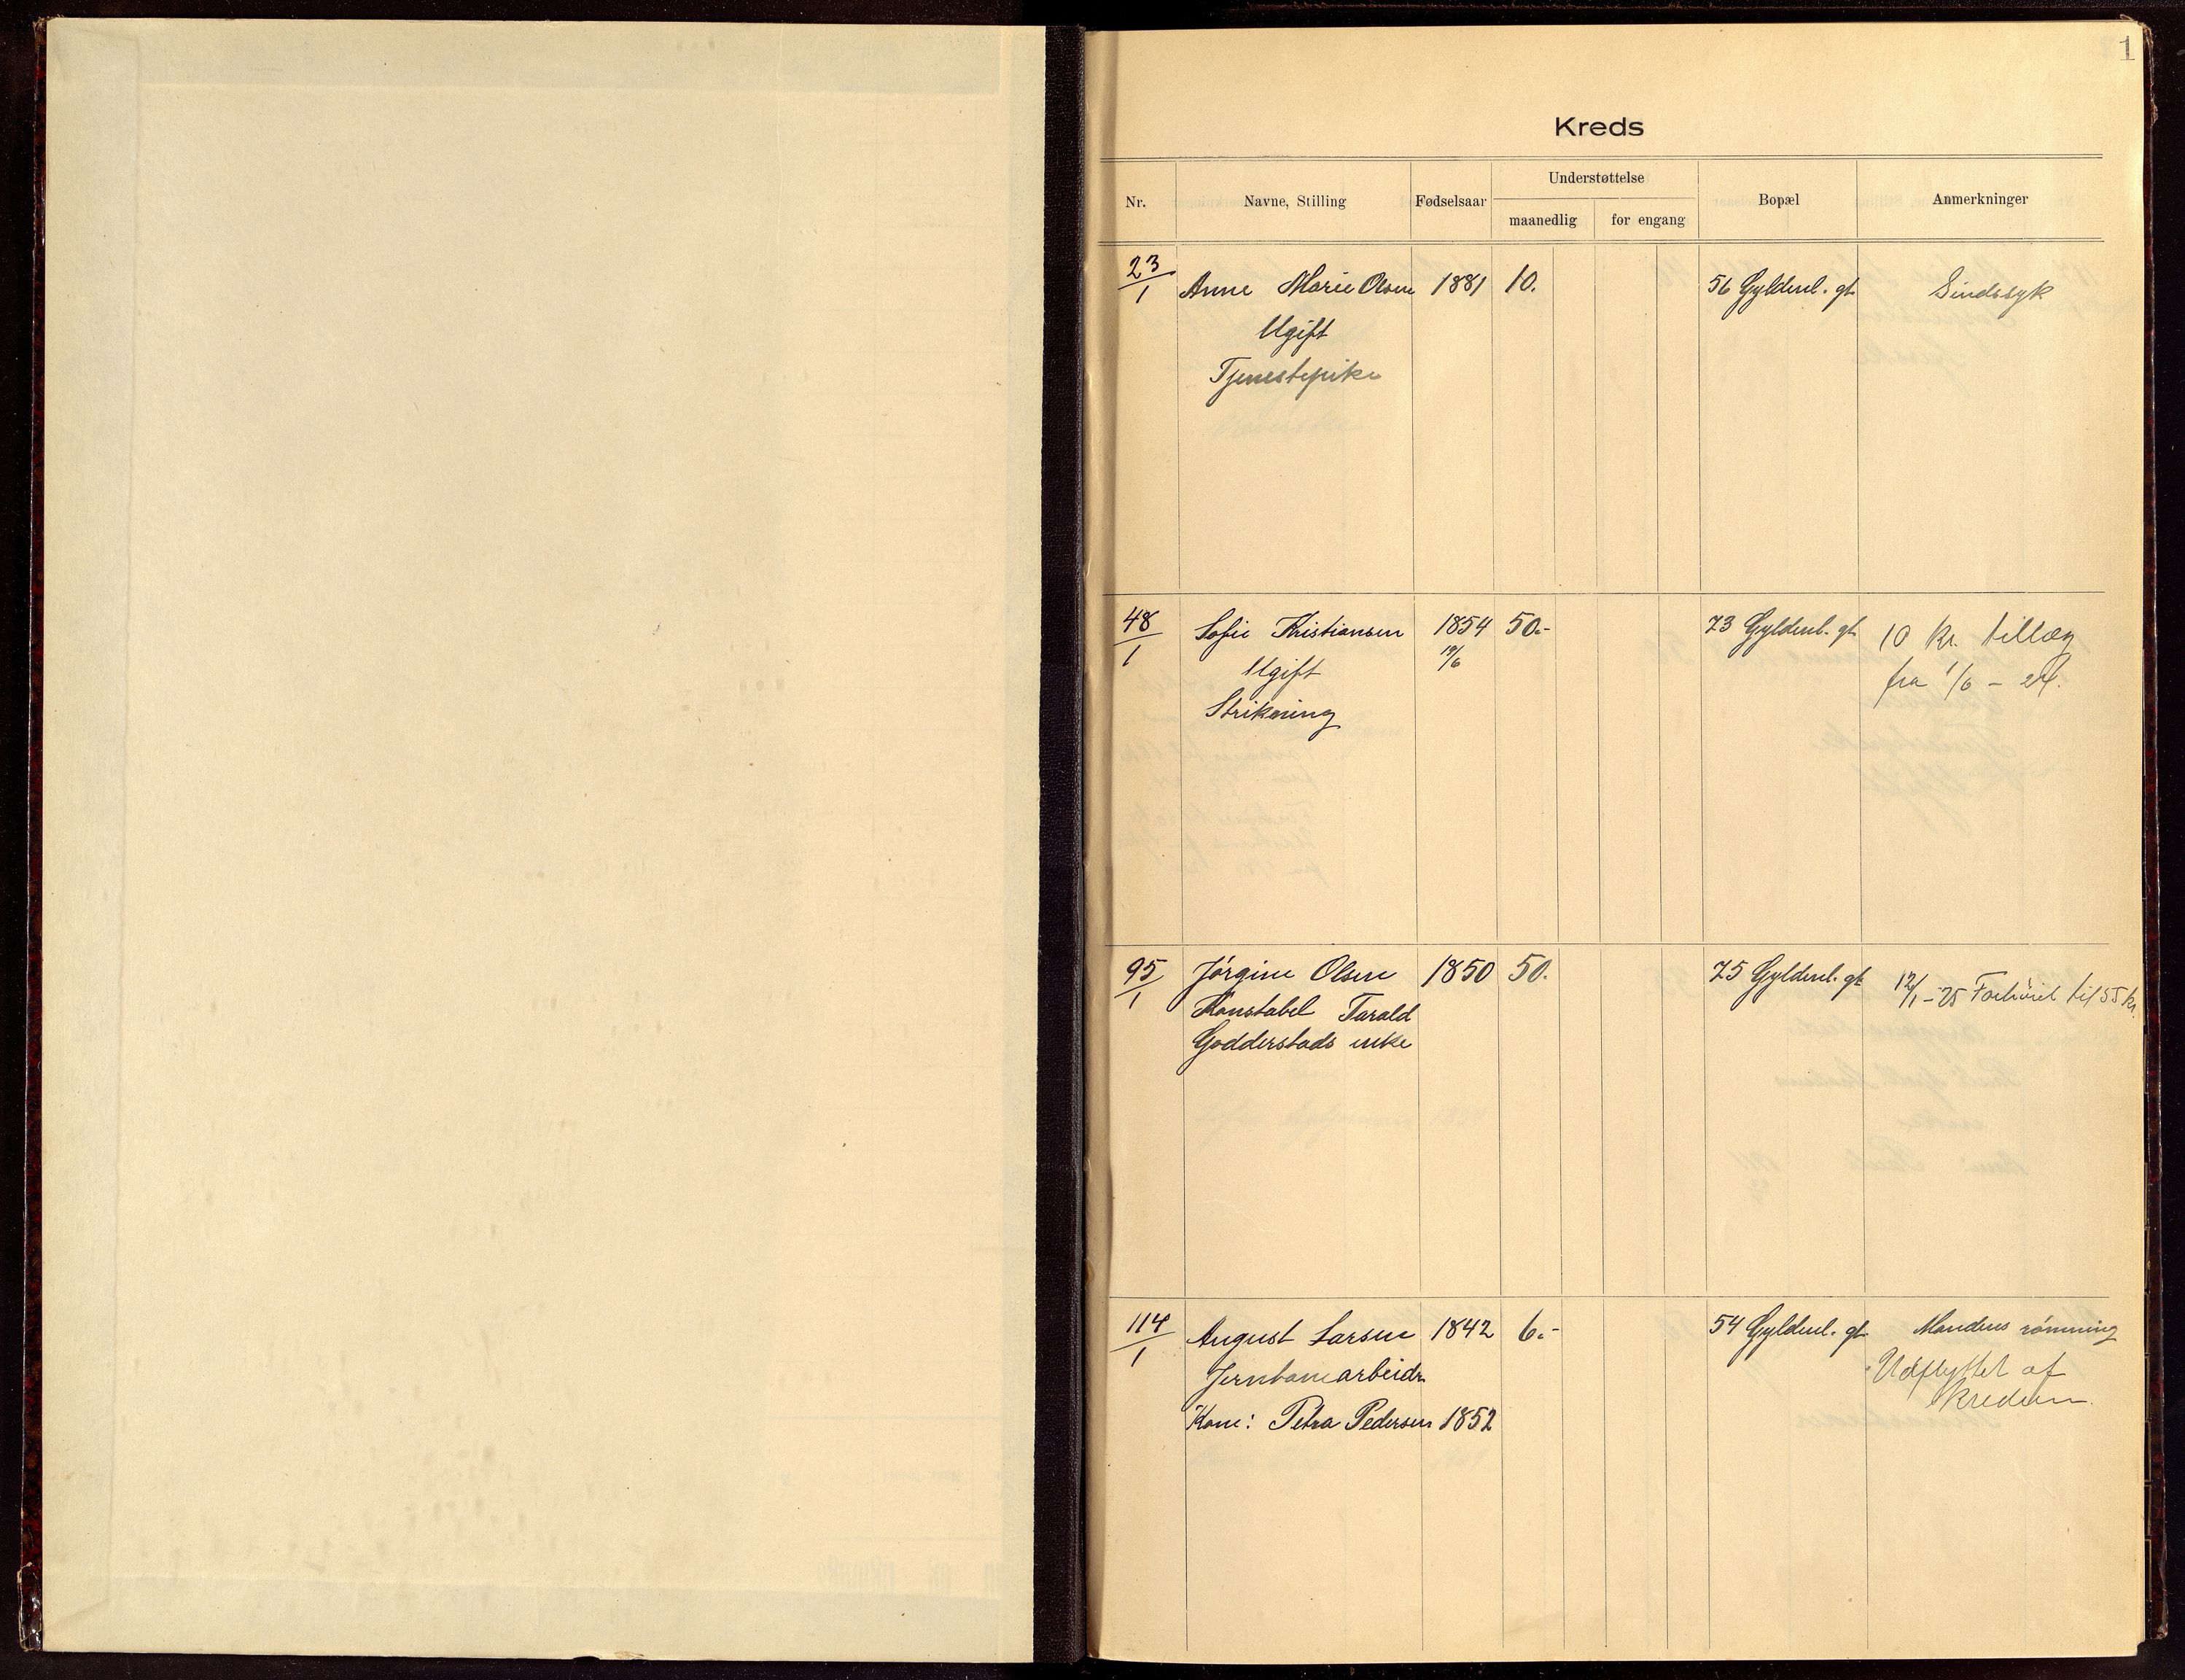 1
Kreds
Nr. Navne, Stilling Fødselsaar Understøttelse Bopæl Anmerkninger
maanedlig for engang
23/1 Anne Marie Olsen 1881 10. 56 Gyldenl. gt. Sindssyk
Ugift
Tjenestepike
48/1 Sofie Kristiansen 1854 50.- 73 Gyldenl. gt. 10 kr. tillæg
Ugift 19/6 fra 1/6 - 24.
Strikning
95/1 Jörgine Olsen 1850 50. 75 Gyldenl. gt. 12/1-25 Forhöiet til 55 kr.
Konstabel Tarald
Godderstads enke
114/1 August Larsen 1842 6.- 54 Gyldenl. gt. Mandens römning
Jernbanearbeider Udflyttet af
Kone: Petra Pedersen 1852 kredsen.